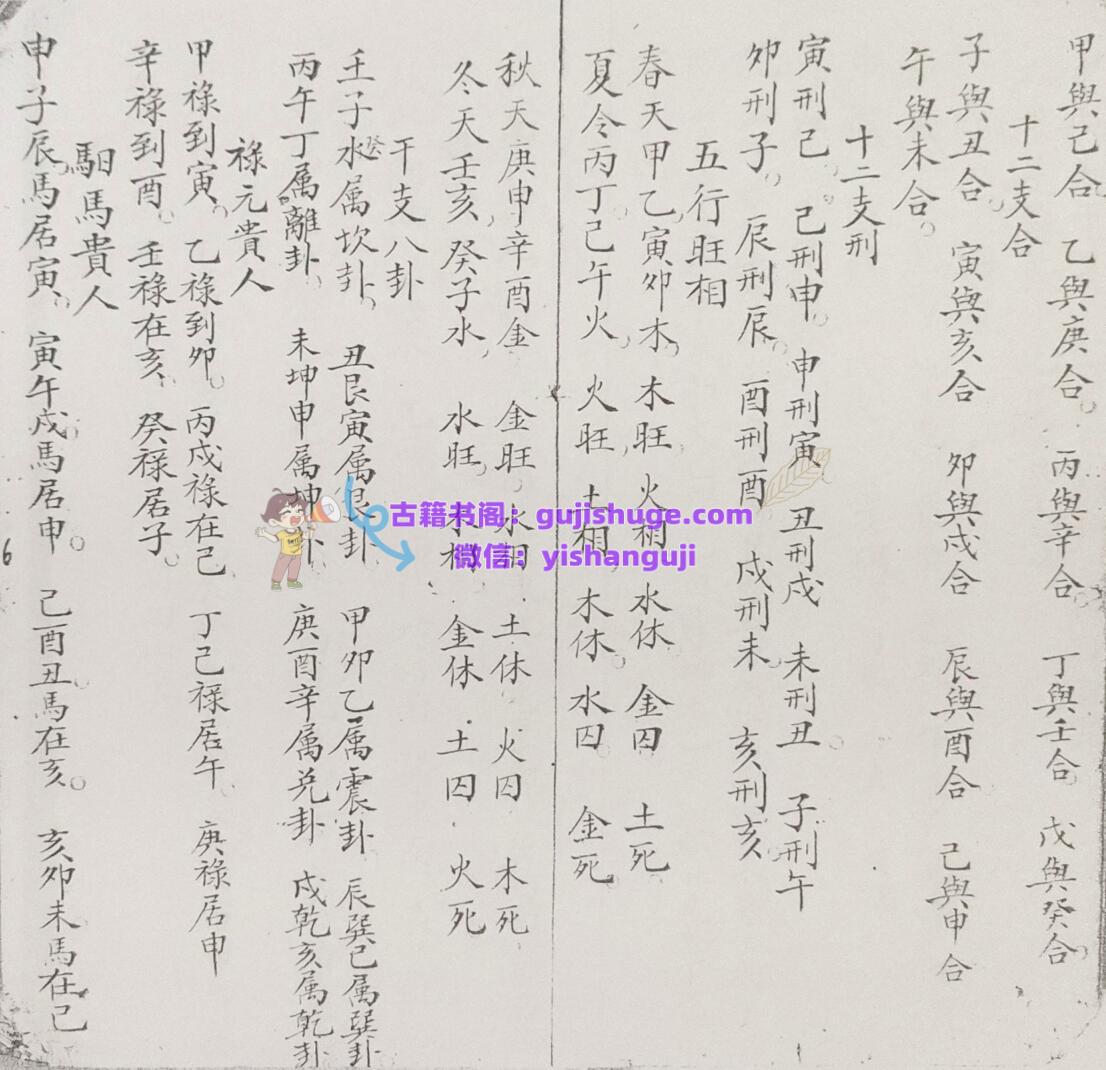 甲與己合。 乙與庚合。 丙與辛合。 丁與壬合。 戊與癸合。
十二支合
子與丑合。 寅與亥合 卯與戌合 辰與酉合 己與申合
午與未合。
十二支刑
寅刑己。 己刑申。 申刑寅 丑刑戌 未刑丑。 子刑午
卯刑子。 辰刑辰。 酉刑酉 戌刑未。 亥刑亥。
五行旺相
春天甲乙寅卯木。 木旺 火相 水休 金囚 土死
夏令丙丁己午火。 火旺 土相 木休。 水囚。 金死
秋天庚申辛酉金 金旺。 水相 土休 火囚 木死
冬天壬亥癸子水。 水旺。 木相 金休 土囚 火死
干支八卦
壬子水癸属坎卦。 丑艮寅属艮卦 甲卯乙属震卦 辰巽己属巽卦
丙午丁属離卦。 未坤申属坤卦 庚酉辛属兑卦 戌乾亥属乾卦
祿元貴人
甲祿到寅。 乙祿到卯。 丙戊祿在己 丁己祿居午。 庚祿居申
辛祿到酉。 壬祿在亥。 癸祿居子。
馹馬貴人
申子辰。馬居寅。 寅午戌馬居申。 己酉丑。馬在亥。 亥卯未馬在己
6
古籍书阁：gujishuge.com
微信：yishanguji